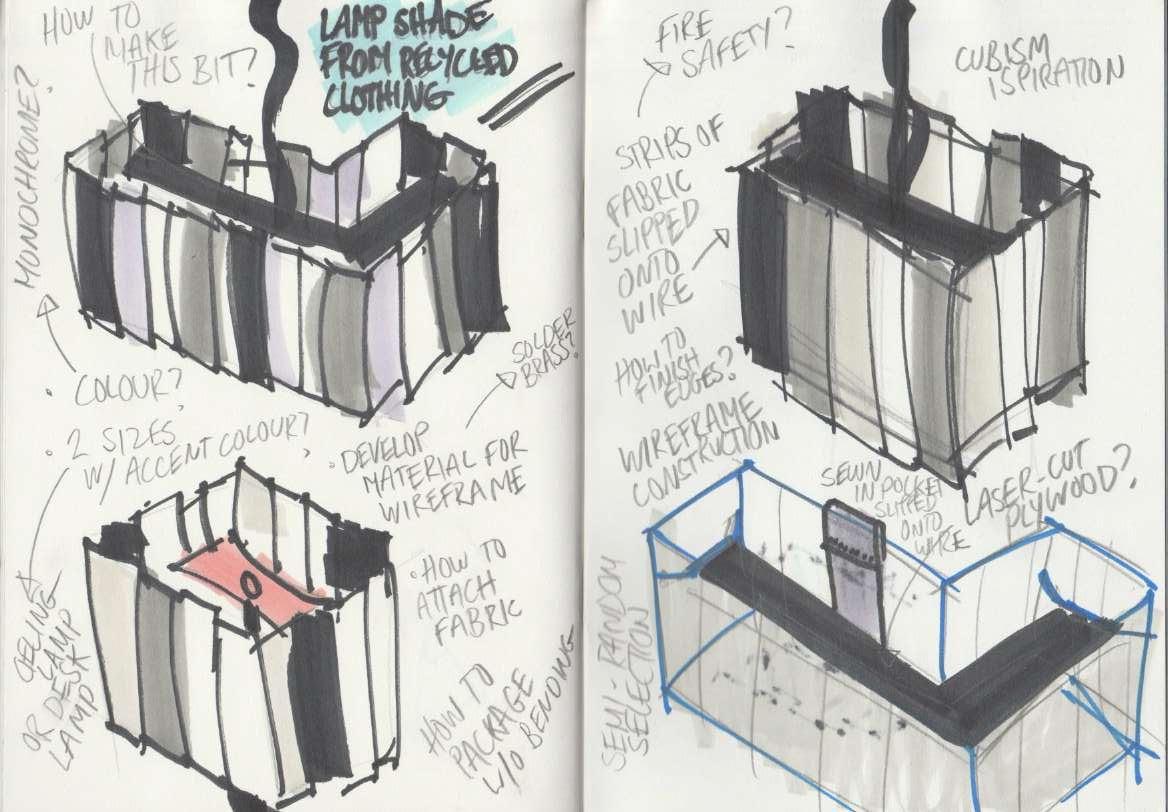 HOW TO
MAKE
THIS BIT?
LAMP SHADE
FROM RECYCLED
CLOTHING
MONOCHROME?
COLOUR?
2 SIZES
W/ ACCENT COLOUR?
SOLDER
BRASS?
DEVELOP
MATERIAL FOR
WIREFRAME
CELING
LAMP
OR DESK
LAMP
HOW TO
ATTACH
FABRIC
HOW TO
PACKAGE
W/O BENDING
FIRE
SAFETY?
CUBISM
ISPIRATION
STRIPS OF
FABRIC
SLIPPED
ONTO
WIRE
HOW TO
FINISH
EDGES?
WIREFRAME
CONSTRUCTION
SEWN
IN POCKET
SLIPPED
ONTO
WIRE
LASER-CUT
PLYWOOD?
SEMI-RANDOM
SELECTION